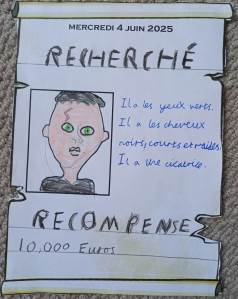 MERCREDI 4 JUIN 2025
RECHERCHÉ
Il a les yeux verts.
Il a les cheveux
noirs, courts et raides.
Il a une cicatrice.
RECOMPENSE
10,000 Euros